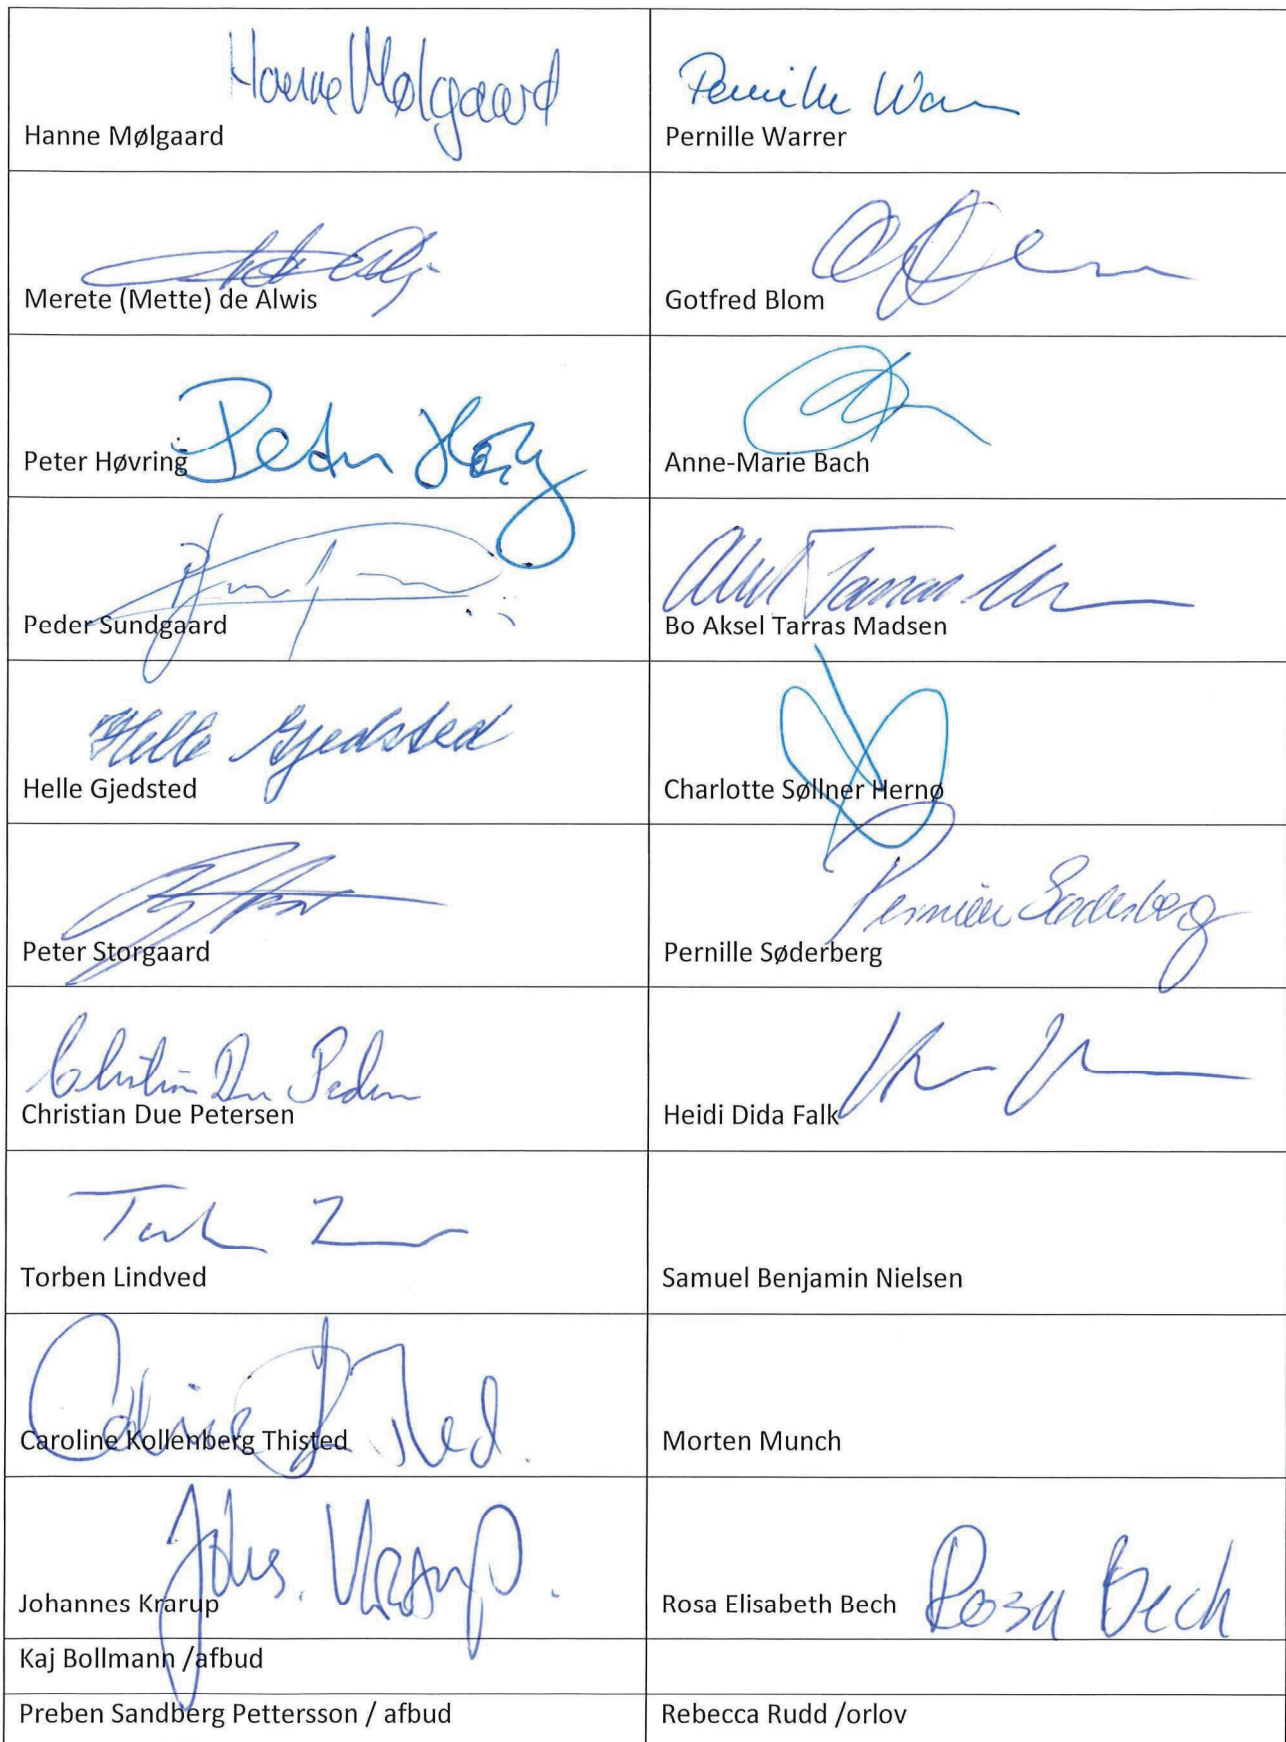 Hanne Mølgaard
Hanne Mølgaard
Pernille War
Pernille Warrer
Merete (Mette) de Alwis
Gotfred Blom
Peter Høvring
Anne-Marie Bach
Peder Sundgaard
Tarras
Bo Aksel Tarras Madsen
Helle Gjedsted
Helle Gjedsted
Charlotte Søllner Hernø
Peter Storgaard
Pernille Søderberg
Pernille Søderberg
Christian Due Petersen
Heidi Dida Falk
Torben Lindved
Samuel Benjamin Nielsen
Caroline Kollenberg Thisted
Morten Munch
Johs. Krarup.
Johannes Krarup
Rosa Elisabeth Bech
Rosa Bech
Kaj Bollmann /afbud
Preben Sandberg Pettersson / afbud
Rebecca Rudd /orlov